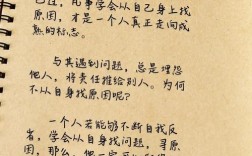 凡事学会从自己身上找
原因，才是一个人真正走向成
熟的标志。
与其遇到问题，总是埋怨
他人，将责任推给别人。为何
不从自身找原因呢？
一个人若能够不断自我反
省，学会从自己身上找问题，寻原
因，那么，